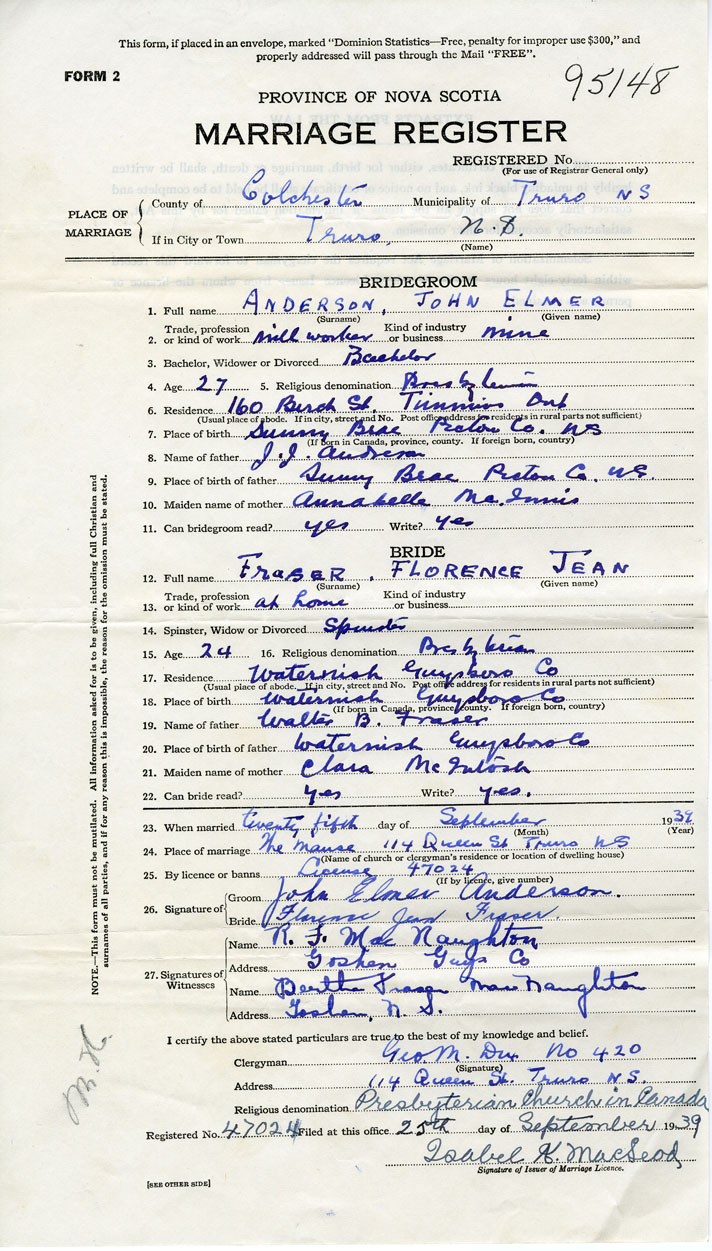 This form, if placed in an envelope, marked "Dominion Statistics—Free, penalty for improper use $300," and
properly addressed will pass through the Mail "FREE".
FORM 2
95148
PROVINCE OF NOVA SCOTIA
MARRIAGE REGISTER
REGISTERED No.
(For use of Registrar General only)
PLACE OF MARRIAGE
County of Colchester Municipality of Truro NS
If in City or Town Truro, N.S.
(Name)
BRIDEGROOM
1. Full name ANDERSON, JOHN ELMER
(Surname) (Given name)
2. Trade, profession or kind of work mill worker Kind of industry or business mine
3. Bachelor, Widower or Divorced Bachelor
4. Age 27 5. Religious denomination Presbyterian
6. Residence 160 Birch St. Timmins Ont
(Usual place of abode. If in city, street and No. Post office address for residents in rural parts not sufficient)
7. Place of birth Sunny Brae Pictou Co. NS
(If born in Canada, province, county. If foreign born, country)
8. Name of father J. J. Anderson
9. Place of birth of father Sunny Brae Pictou Co. NS.
10. Maiden name of mother Annabelle McInnis
11. Can bridegroom read? yes Write? yes
BRIDE
12. Full name FRASER, FLORENCE JEAN
(Surname) (Given name)
13. Trade, profession or kind of work at home Kind of industry or business
14. Spinster, Widow or Divorced Spinster
15. Age 24 16. Religious denomination Presbyterian
17. Residence Waternish Guysboro Co
(Usual place of abode. If in city, street and No. Post office address for residents in rural parts not sufficient)
18. Place of birth Waternish Guysboro Co
(If born in Canada, province, county. If foreign born, country)
19. Name of father Walter B. Fraser
20. Place of birth of father Waternish Guysboro Co
21. Maiden name of mother Clara McIntosh
22. Can bride read? yes Write? yes.
23. When married twenty fifth day of September 1939
(Month) (Year)
24. Place of marriage The Manse 114 Queen St Truro NS
(Name of church or clergyman's residence or location of dwelling house)
25. By licence or banns License 47024
(If by licence, give number)
26. Signature of
Groom John Elmer Anderson.
Bride Florence Jean Fraser.
27. Signatures of Witnesses
Name R. F. MacNaughton
Address Goshen Guys Co
Name Bertha Fraser MacNaughton
Address Goshen, N.S.
I certify the above stated particulars are true to the best of my knowledge and belief.
Clergyman Geo. M. No 420
(Signature)
Address 114 Queen St. Truro N.S.
Religious denomination Presbyterian Church in Canada
Registered No. 47024 Filed at this office 25th day of September 1939
Isabel K. MacLeod
Signature of Issuer of Marriage Licence.
[SEE OTHER SIDE]
NOTE.—This form must not be mutilated. All information asked for is to be given, including full Christian and
surnames of all parties, and if for any reason this is impossible, the reason for the omission must be stated.